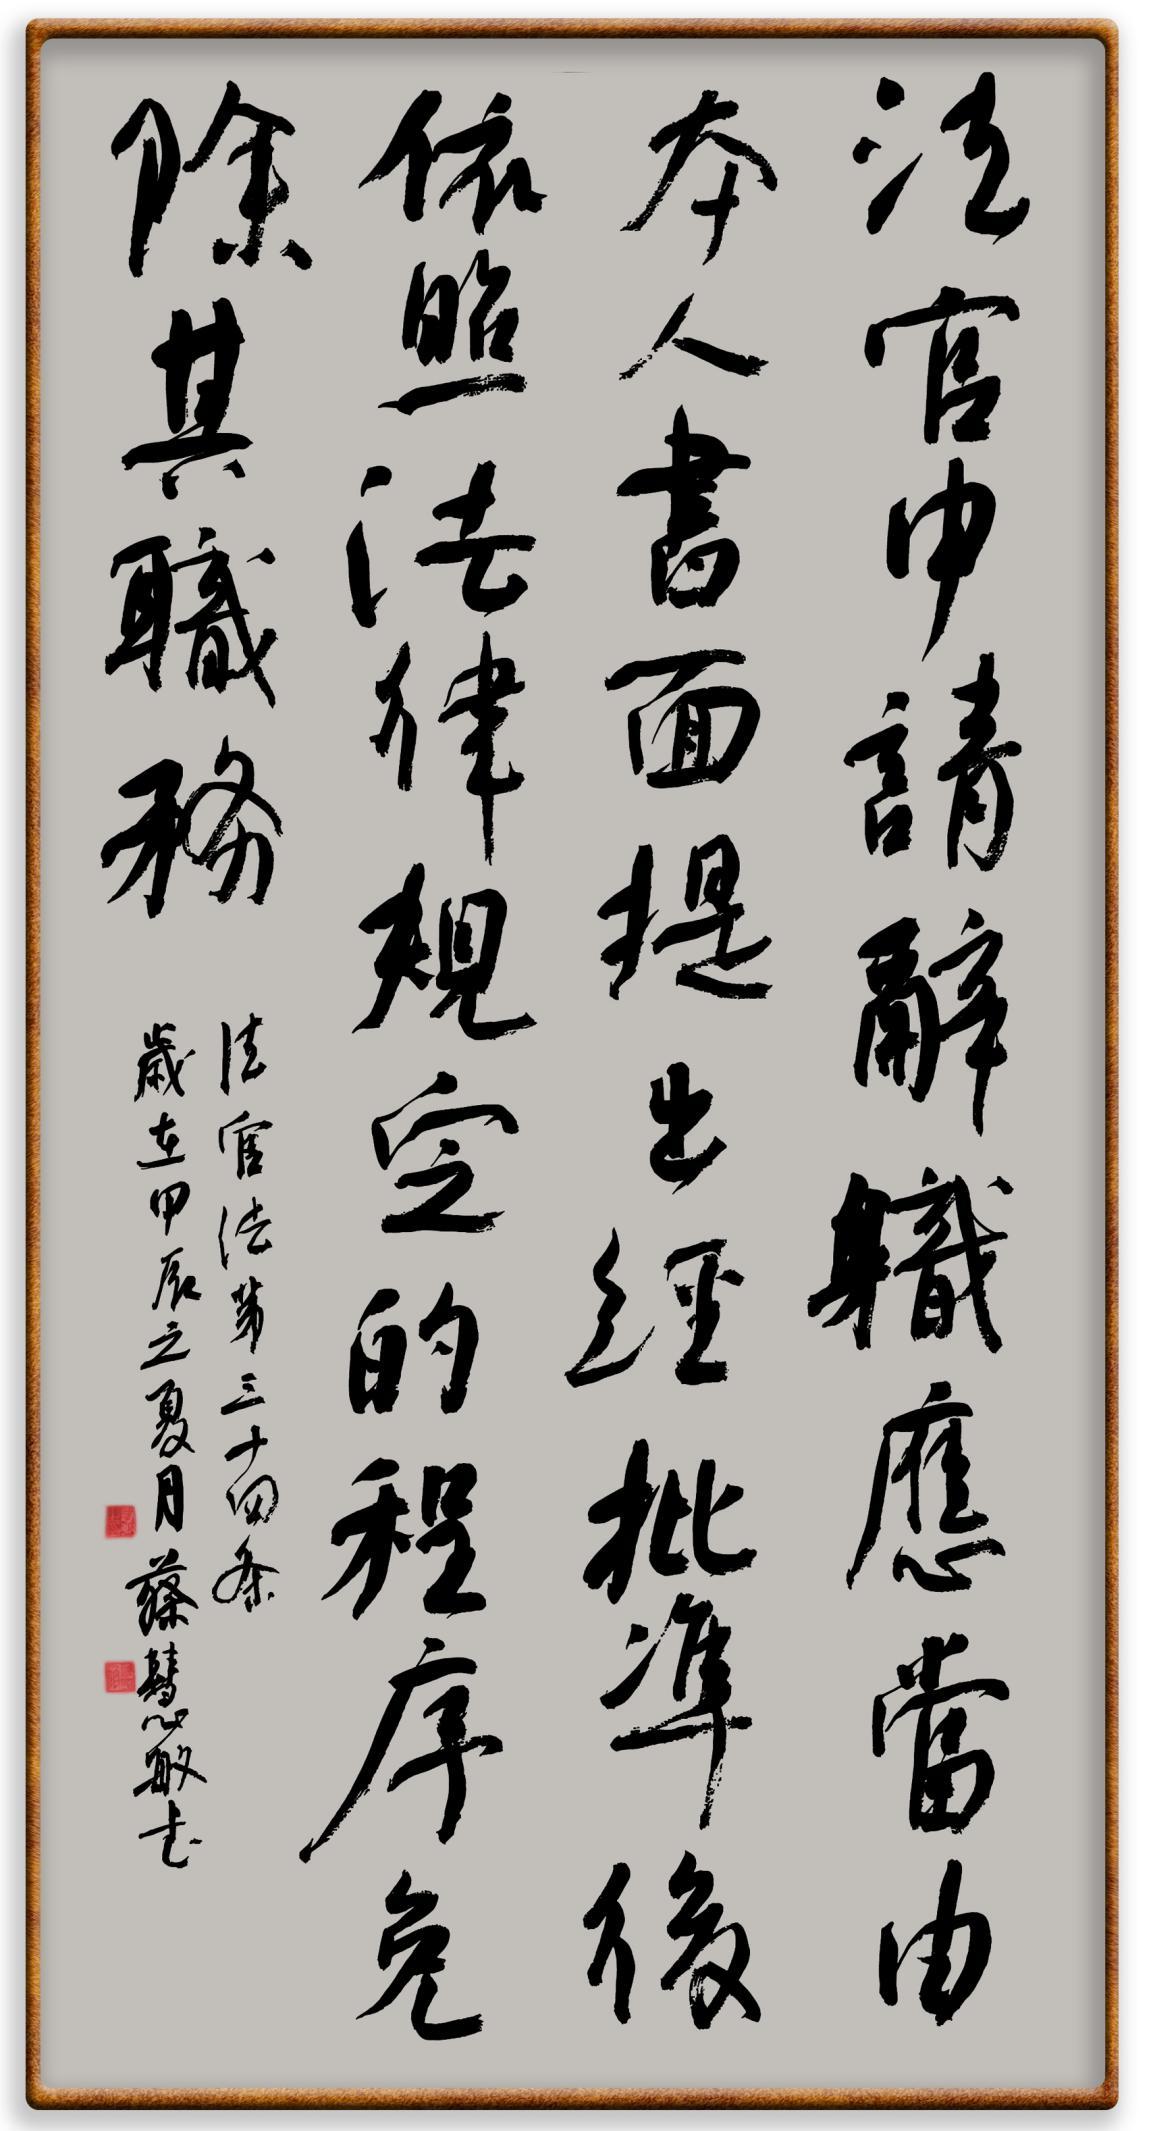 法官申請辭職應當由
本人書面提出經批準後
依照法律規定的程序免
除其職務
法官法第三十四条
歲在甲辰之夏月蔡慧敏书